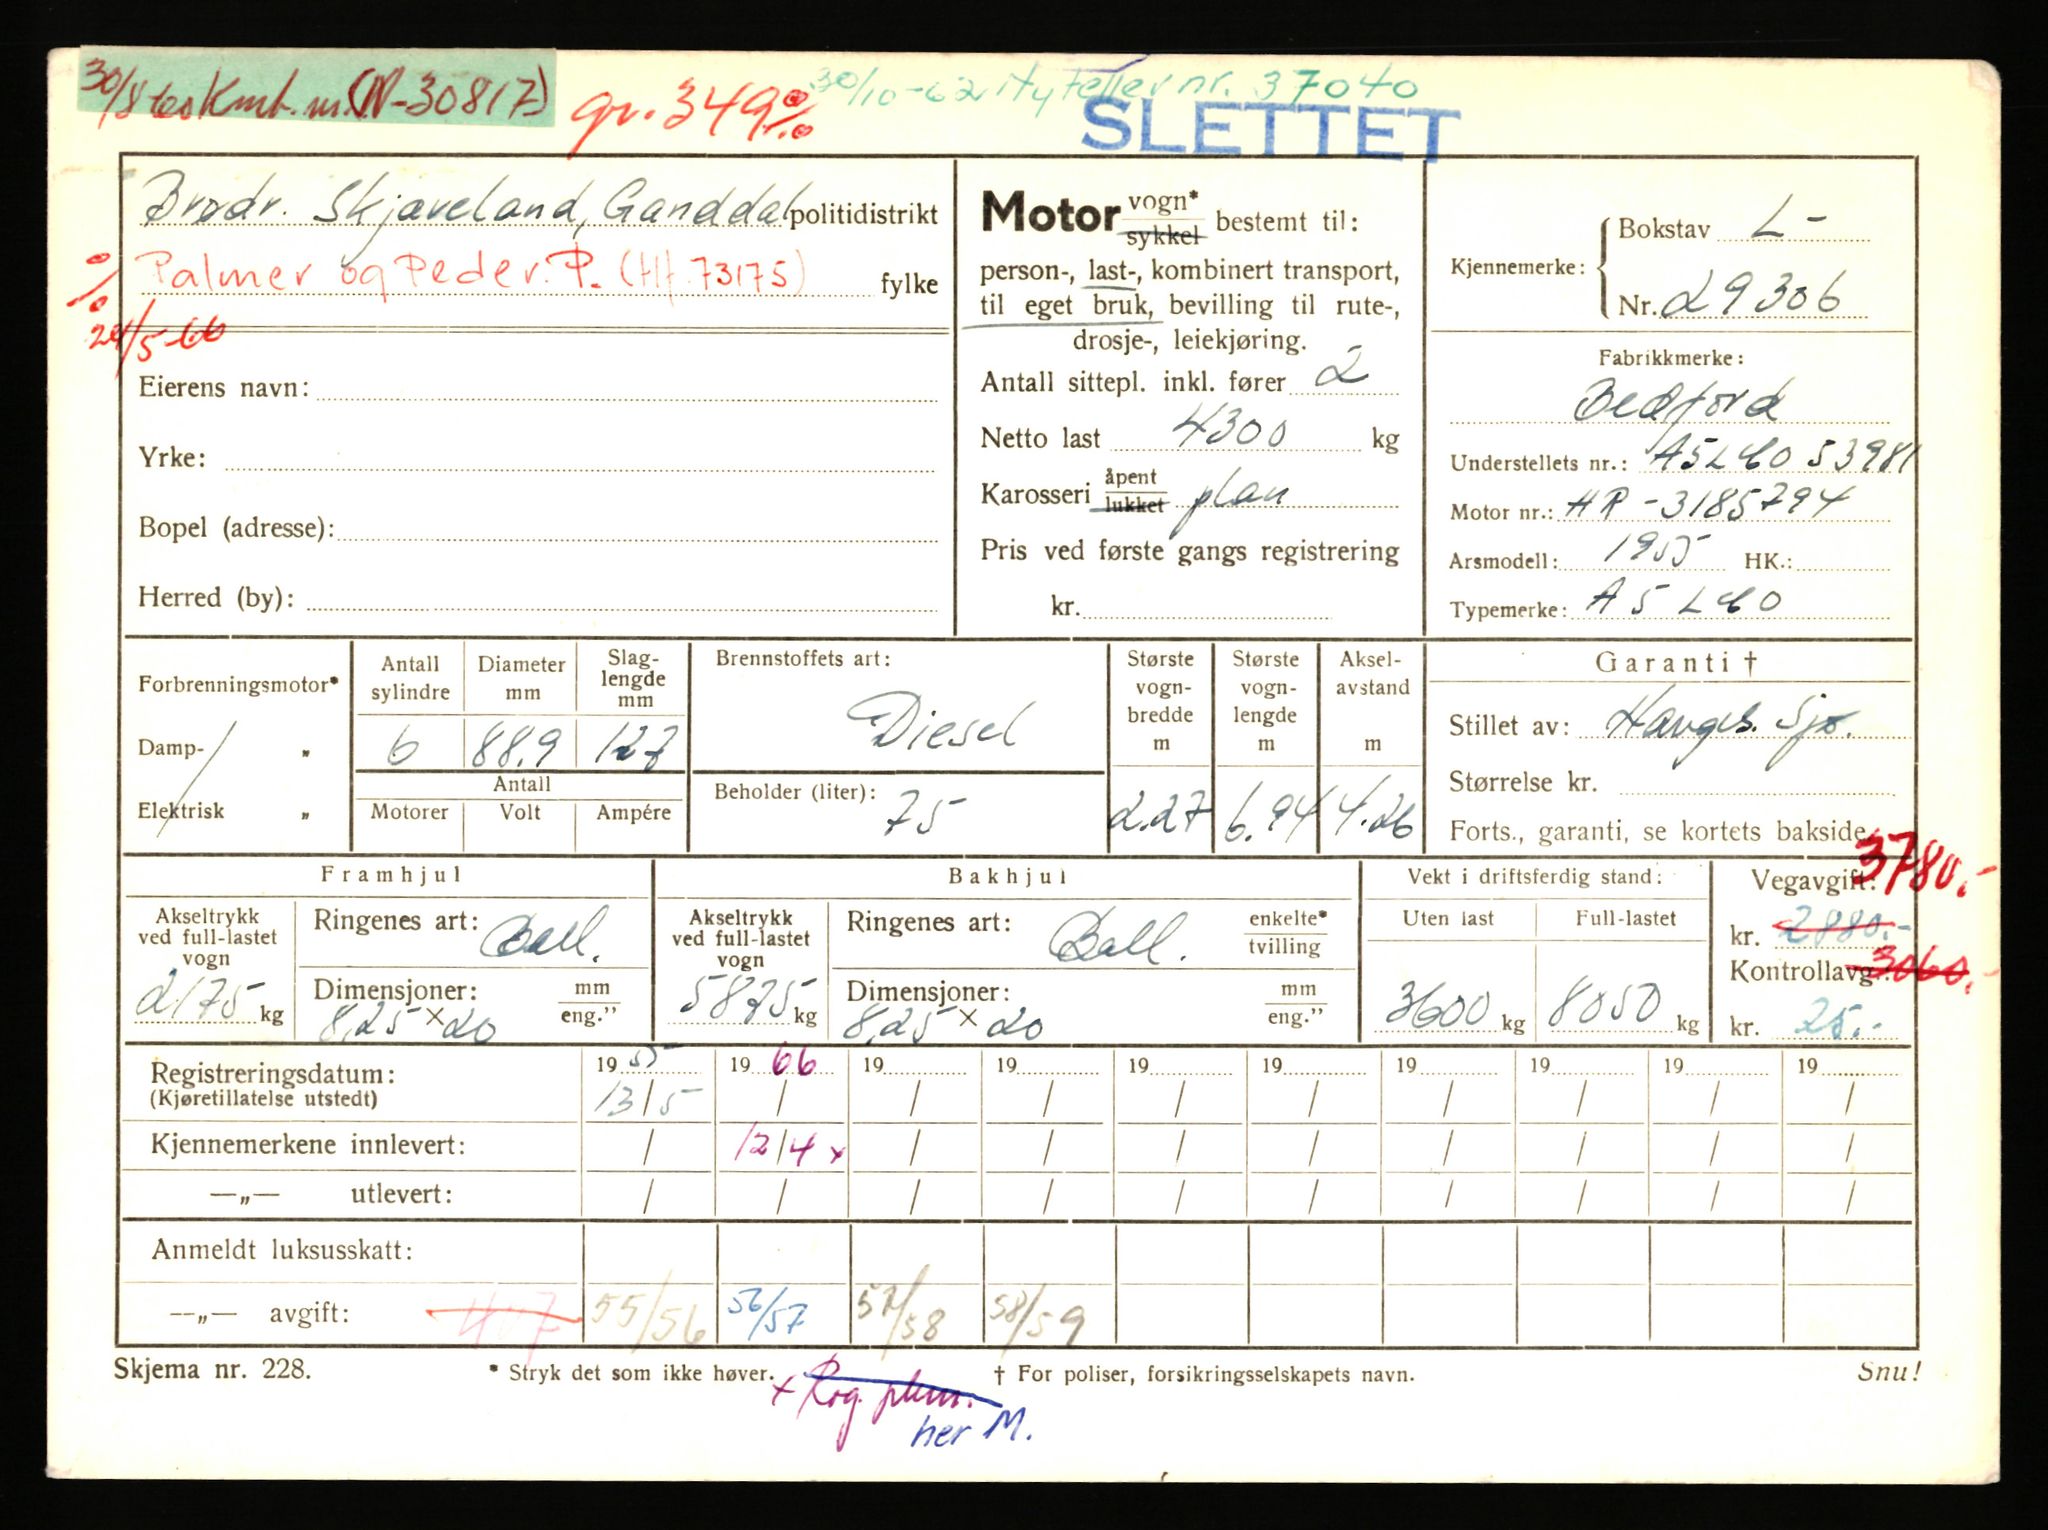 30/8 Kmt. (N-30817) gr. 349 % 30/10-62 Ny teller nr. 37040
SLETTET
Brødr. Skjæveland, Ganddal politidistrikt
Palmer og Peder. P. (tlf. 73175) fylke
%
24/5-66
Eierens navn:
Yrke:
Bopel (adresse):
Herred (by):
Motor vogn* sykkel bestemt til:
person-, last-, kombinert transport,
til eget bruk, bevilling til rute-,
drosje-, leiekjøring.
Antall sittepl. inkl. fører 2
Netto last 4300 kg
Karosseri åpent lukket plan
Pris ved første gangs registrering
kr.
Kjennemerke: Bokstav L-
Nr. 29306
Fabrikkmerke:
Bedford
Understellets nr.: A5LC0 53981
Motor nr.: HR-3185794
Arsmodell: 1955 HK.:
Typemerke: A5LC0
Forbrenningsmotor*
Damp- „
Elektrisk „
Antall sylindre 6
Diameter mm 88.9
Slag-lengde mm 127
Antall
Motorer Volt Ampére
Brennstoffets art:
Diesel
Beholder (liter):
75
Største vogn-bredde m 2.27
Største vogn-lengde m 6.94
Aksel-avstand m 4.26
Garanti †
Stillet av: Hauges. Sjø.
Størrelse kr.
Forts., garanti, se kortets bakside.
Framhjul
Akseltrykk ved full-lastet vogn
2175 kg
Ringenes art: Ball.
Dimensjoner: mm eng.”
8,25 x 20
Bakhjul
Akseltrykk ved full-lastet vogn
5875 kg
Ringenes art: Ball. enkelte* tvilling
Dimensjoner: mm eng.”
8,25 x 20
Vekt i driftsferdig stand:
Uten last Full-lastet
3600 kg 8050 kg
Vegavgift: 3780.-
kr. 2880.-
Kontrollavg.: 3060.-
kr. 25.-
Registreringsdatum: 1955 1966 19 19 19 19 19 19 19 19
(Kjøretillatelse utstedt) 13/5 / / / / / / / / /
Kjennemerkene innlevert: / 12/4 x / / / / / / / /
—„— utlevert: / / / / / / / / / /
Anmeldt luksusskatt:
—„— avgift: 407 55/56 56/57 57/58 58/59
Skjema nr. 228. * Stryk det som ikke høver. † For poliser, forsikringsselskapets navn. Snu!
x Rog. plm.
her M.